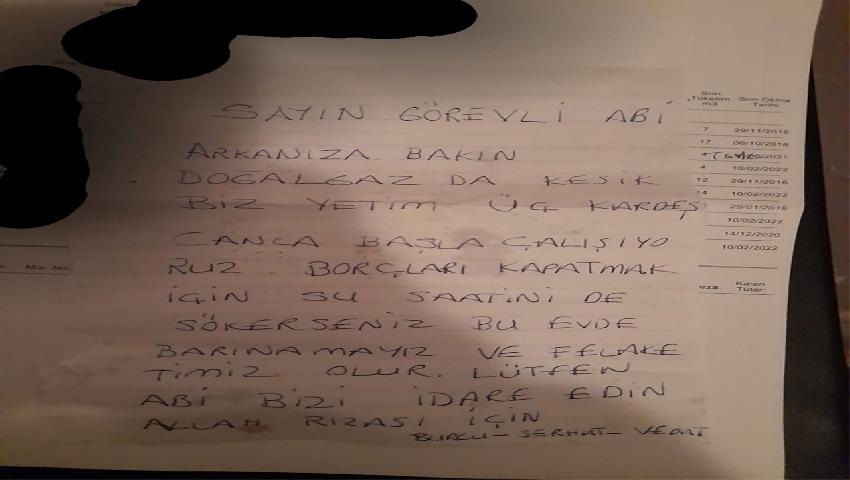 SAYIN GÖREVLİ ABİ
ARKANIZA BAKIN
DOĞALGAZ DA KESİK
BİZ YETİM ÜÇ KARDEŞ
CANLA BAŞLA ÇALIŞIYO
RUZ BORÇLARI KAPATMAK
İÇİN SU SAATİNİ DE
SÖKERSENİZ BU EVDE
BARINAMAYIZ VE FELAKE
TİMİZ OLUR. LÜTFEN
ABİ BİZİ İDARE EDİN
ALLAH RIZASI İÇİN
BURCU - SERHAT - VEDAT
Son Tüketim m3 Son Okma Tarihi
7 29/11/2016
17 06/10/2018
4 10/02/2022
12 29/11/2016
14 10/02/2022
29/01/2016
10/02/2022
14/12/2020
10/02/2022
eza: Kalan Tutar:
Mür. No: